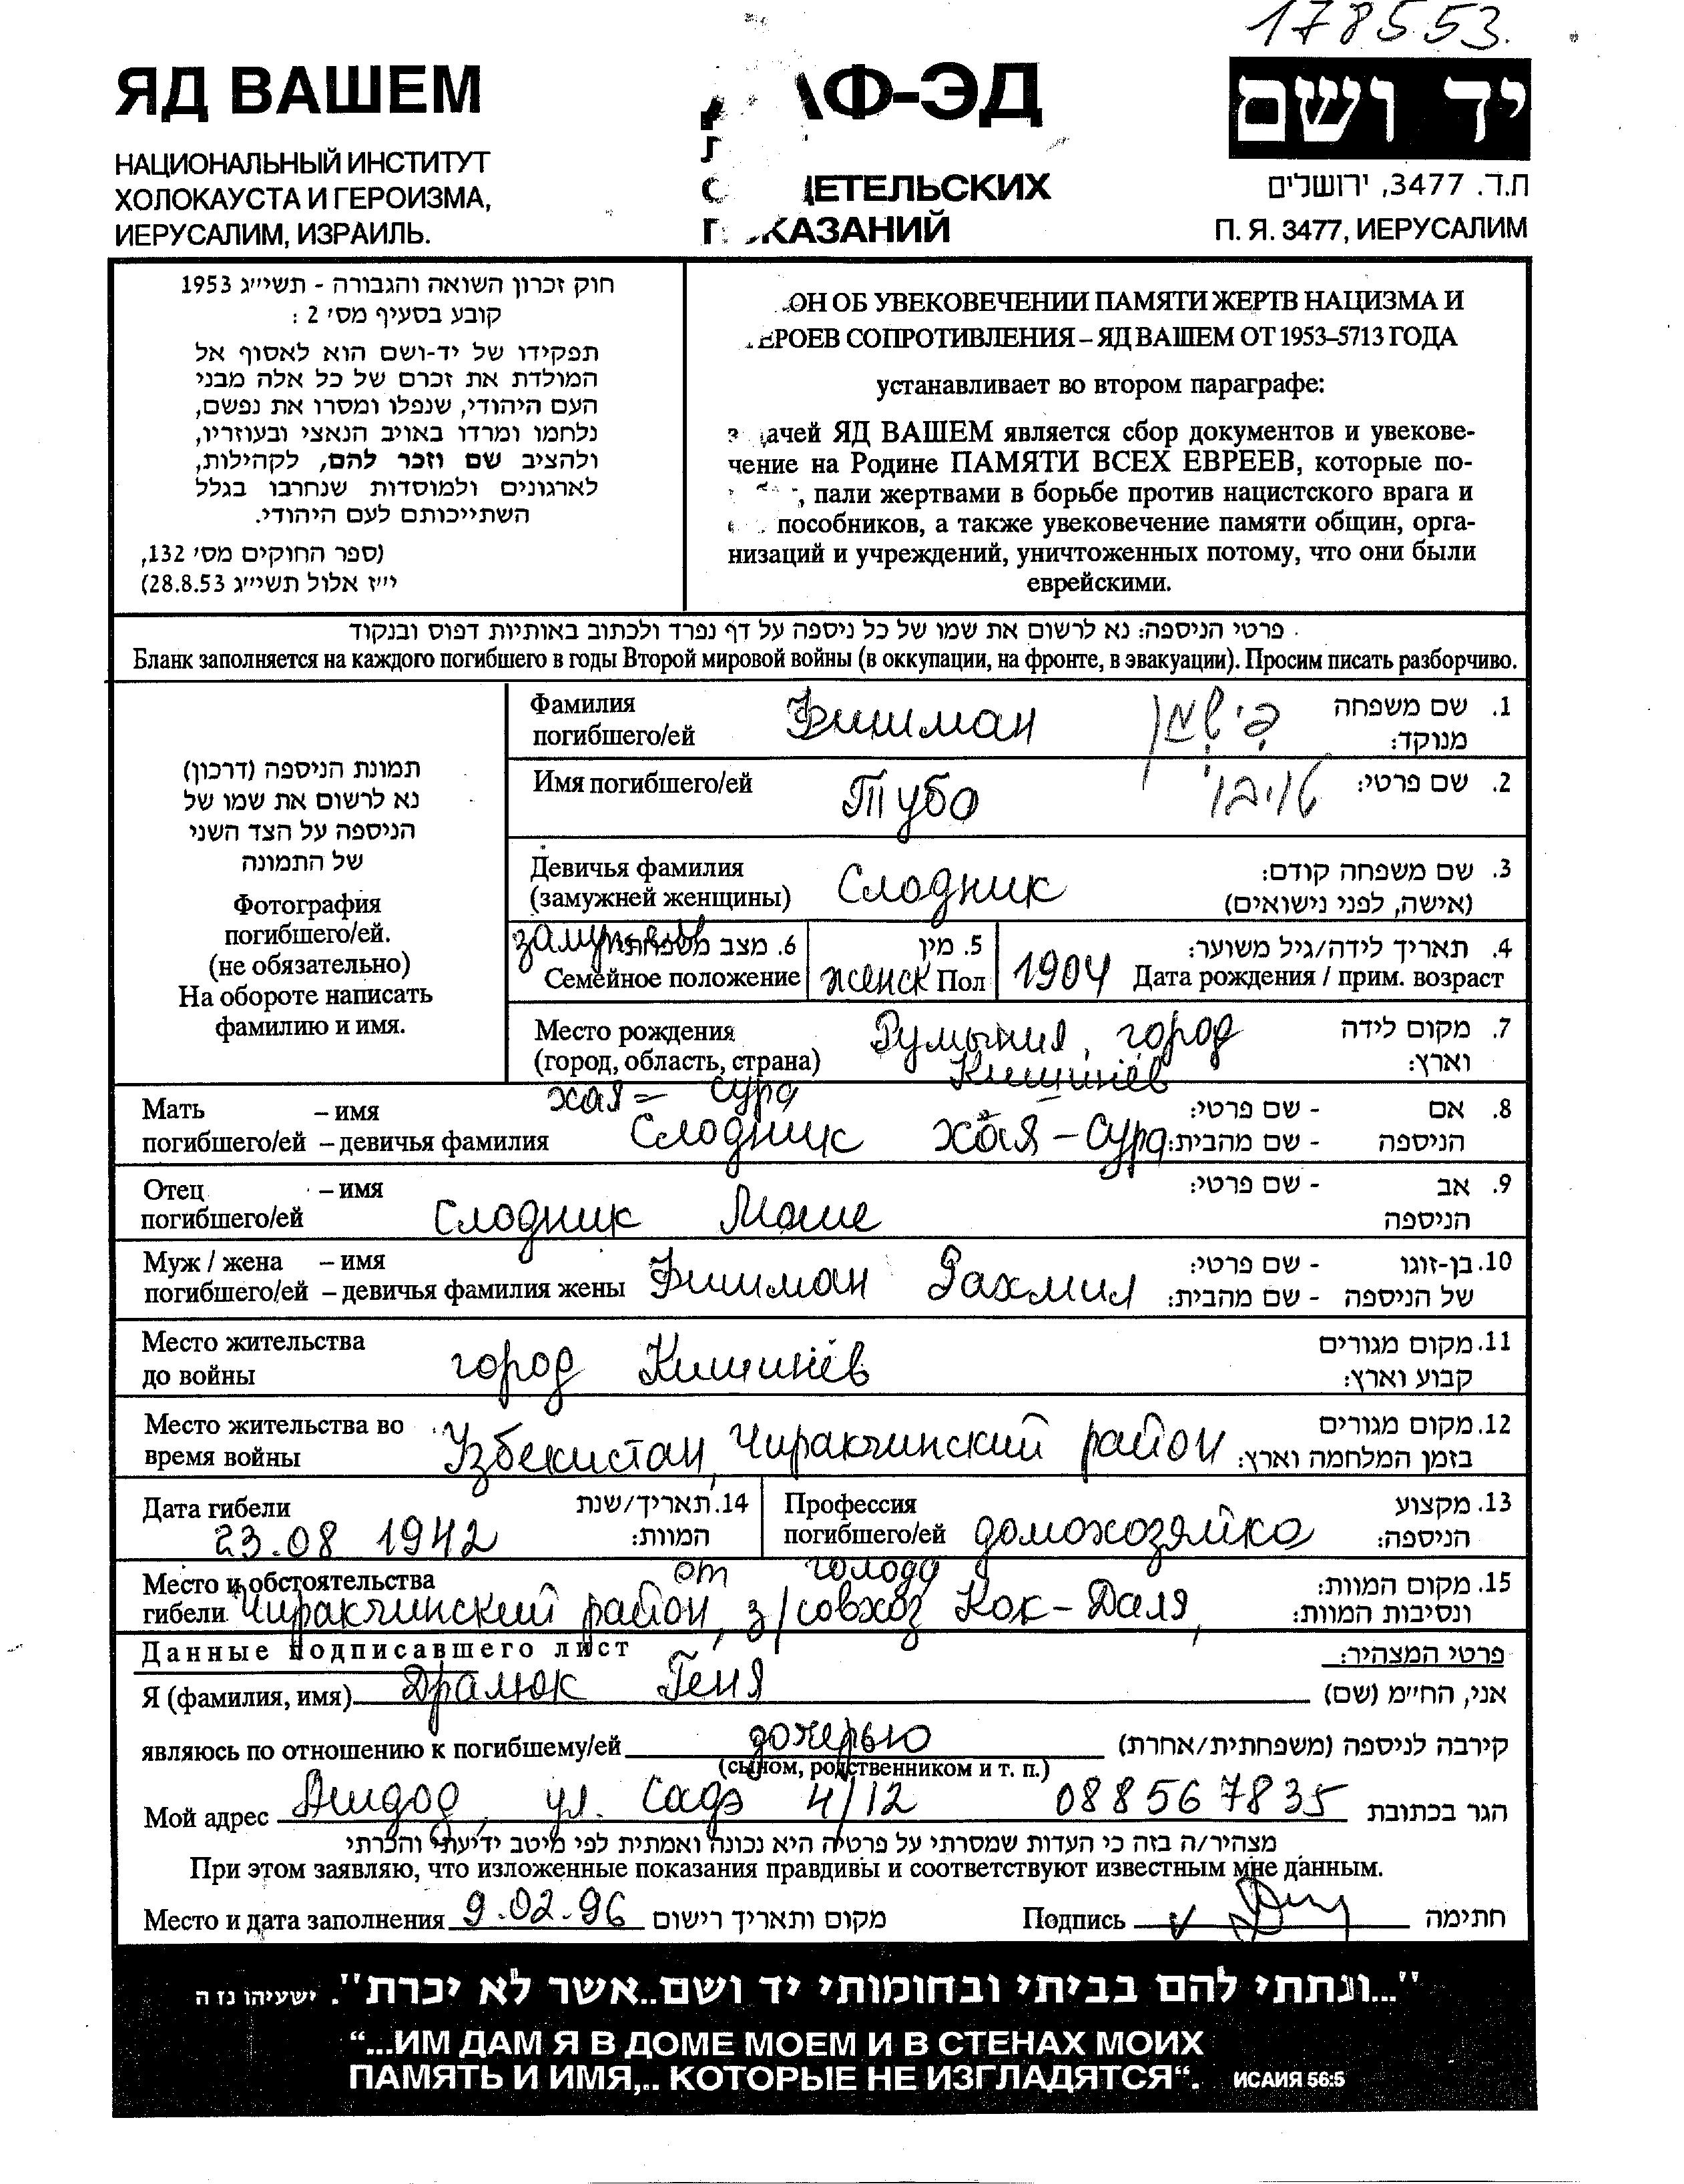 178553.
ЯД ВАШЕМ
НАЦИОНАЛЬНЫЙ ИНСТИТУТ
ХОЛОКАУСТА И ГЕРОИЗМА,
ИЕРУСАЛИМ, ИЗРАИЛЬ.
АФ-ЭД
ДЕТЕЛЬСКИХ
КАЗАНИЙ
יד ושם
ת.ד. 3477, ירושלים
П. Я. 3477, ИЕРУСАЛИМ
חוק זכרון השואה והגבורה - תשי״ג 1953
קובע בסעיף מס׳ 2 :
תפקידו של יד-ושם הוא לאסוף אל
המולדת את זכרם של כל אלה מבני
העם היהודי, שנפלו ומסרו את נפשם,
נלחמו ומרדו באויב הנאצי ובעוזריו,
ולהציב שם וזכר להם, לקהילות,
לארגונים ולמוסדות שנחרבו בגלל
השתייכותם לעם היהודי.
(ספר החוקים מס׳ 132,
י״ז אלול תשי״ג 28.8.53)
ОН ОБ УВЕКОВЕЧЕНИИ ПАМЯТИ ЖЕРТВ НАЦИЗМА И
ЕРОЕВ СОПРОТИВЛЕНИЯ – ЯД ВАШЕМ ОТ 1953–5713 ГОДА
устанавливает во втором параграфе:
дачей ЯД ВАШЕМ является сбор документов и увекове-
чение на Родине ПАМЯТИ ВСЕХ ЕВРЕЕВ, которые по-
, пали жертвами в борьбе против нацистского врага и
пособников, а также увековечение памяти общин, орга-
низаций и учреждений, уничтоженных потому, что они были
еврейскими.
פרטי הניספה: נא לרשום את שמו של כל ניספה על דף נפרד ולכתוב באותיות דפוס ובנקוד
Бланк заполняется на каждого погибшего в годы Второй мировой войны (в оккупации, на фронте, в эвакуации). Просим писать разборчиво.
תמונת הניספה (דרכון)
נא לרשום את שמו של
הניספה על הצד השני
של התמונה
Фотография
погибшего/ей.
(не обязательно)
На обороте написать
фамилию и имя.
Фамилия погибшего/ей Фишман פישמן 1. שם משפחה מנוקד:
Имя погибшего/ей Тубо טויבי 2. שם פרטי:
Девичья фамилия (замужней женщины) Слодник 3. שם משפחה קודם: (אישה, לפני נישואים)
замужем 6. מצב משפחתי Семейное положение
женск 5. מין Пол
1904 4. תאריך לידה/גיל משוער: Дата рождения / прим. возраст
Место рождения (город, область, страна) Румыния, город Кишинёв 7. מקום לידה וארץ:
Мать – имя Хая – Сура 8. אם - שם פרטי:
погибшего/ей – девичья фамилия Слодник Хая – Сура הניספה - שם מהבית:
Отец – имя 9. אב - שם פרטי:
погибшего/ей Слодник Моше הניספה
Муж / жена – имя 10. בן-זוגו - שם פרטי:
погибшего/ей – девичья фамилия жены Фишман Рахмил של הניספה - שם מהבית:
Место жительства до войны город Кишинёв 11. מקום מגורים קבוע וארץ:
Место жительства во время войны Узбекистан, Чиракчинский район 12. מקום מגורים בזמן המלחמה וארץ:
Дата гибели 23.08 1942 14. תאריך/שנת המוות:
Профессия погибшего/ей домохозяйка 13. מקצוע הניספה:
Место и обстоятельства от голода 15. מקום המוות:
гибели Чиракчинский район, з/совхоз Кок-Даля, ונסיבות המוות:
Данные подписавшего лист פרטי המצהיר:
Я (фамилия, имя) Драмок Геня אני, הח״מ (שם)
являюсь по отношению к погибшему/ей дочерью קירבה לניספה (משפחתית/אחרת)
(сыном, родственником и т. п.)
Мой адрес Ашдод, ул. Саде 4/12 088567835 הגר בכתובת
מצהיר/ה בזה כי העדות שמסרתי על פרטיה היא נכונה ואמתית לפי מיטב ידיעתי והכרתי
При этом заявляю, что изложенные показания правдивы и соответствуют известным мне данным.
Место и дата заполнения 9.02.96 מקום ותאריך רישום Подпись חתימה
"...ונתתי להם בביתי ובחומותי יד ושם..אשר לא יכרת". ישעיהו נז ה
“...ИМ ДАМ Я В ДОМЕ МОЕМ И В СТЕНАХ МОИХ
ПАМЯТЬ И ИМЯ,.. КОТОРЫЕ НЕ ИЗГЛАДЯТСЯ“. ИСАИЯ 56:5